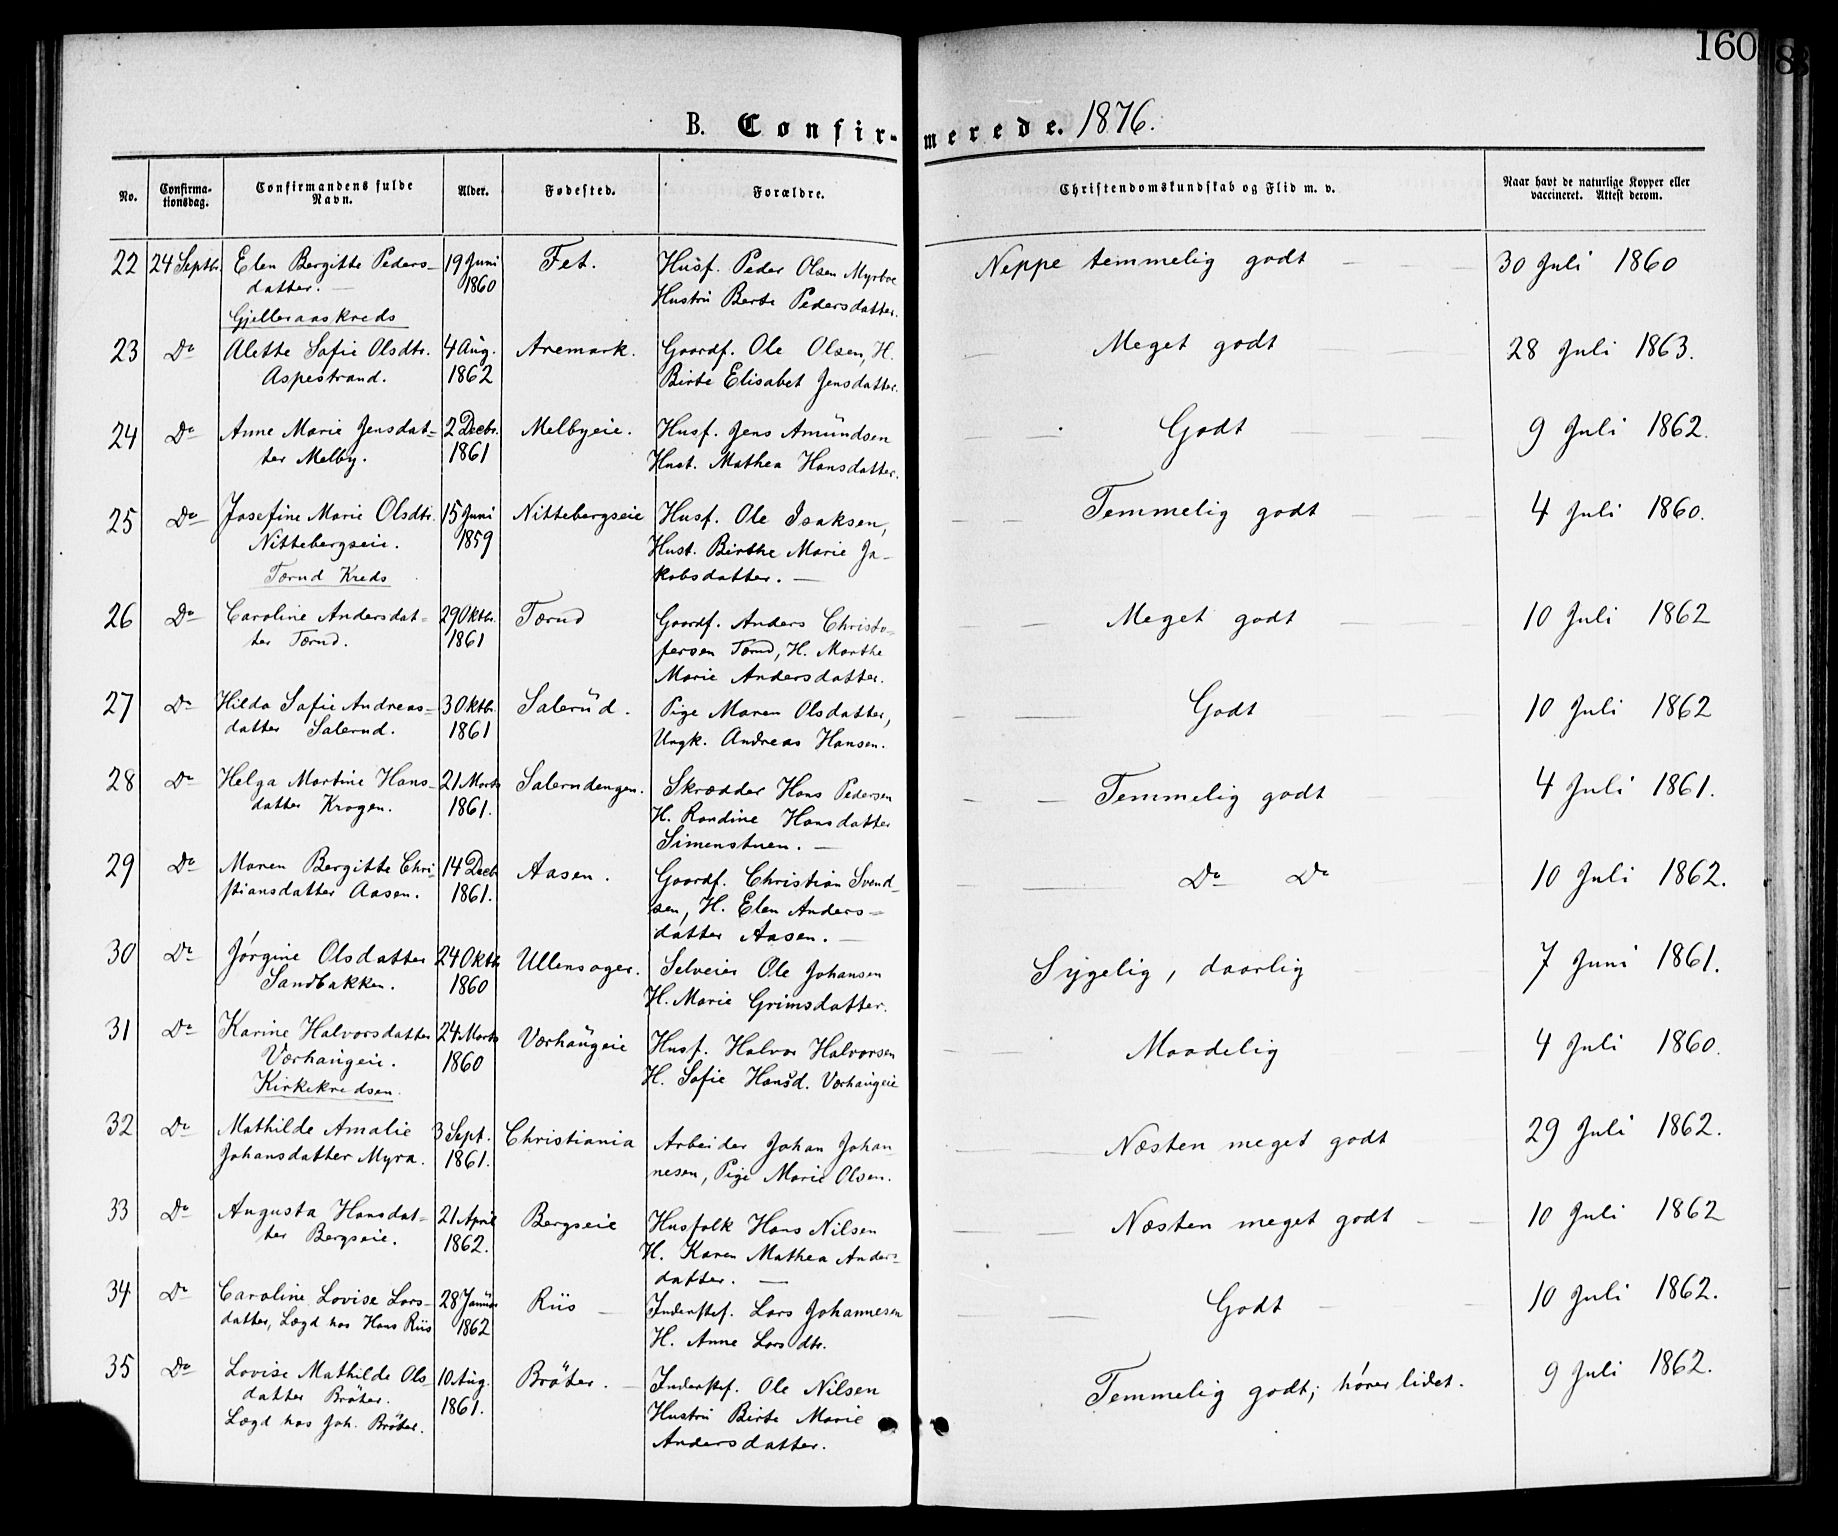 160
B. Confirmerede. 1876.
No. Confirmationsdag. Confirmandens fulde Navn. Alder. Fødested. Forældre. Christendomskundskab og Flid m. v. Naar havt de naturlige Kopper eller vaccineret. Attest derom.
22 24 Septbr. Elen Bergitte Peders- 19 Juni Fet. Husf. Peder Olsen Myrbroe Neppe temmelig godt 30 Juli 1860
datter. 1860 Hustrü Berte Pedersdatter.
Gjelleraaskreds
23 Do Alette Sofie Olsdtr. 4 Aug. Aremark. Gaardf. Ole Olsen, H. Meget godt 28 Juli 1863.
Aspestrand. 1862 Birte Elisabet Jensdatter.
24 Do Anne Marie Jensdat- 2 Decbr. Melbyeie. Husf. Jens Amündsen Godt 9 Juli 1862.
ter Melby. 1861 Hust. Mathea Hansdatter.
25 Do Josefine Marie Olsdtr. 15 Juni Nittebergseie Husf. Ole Isaksen, Temmelig godt 4 Juli 1860.
Nittebergseie. 1859 Hust. Birthe Marie Ja-
Tærud Kreds kobsdatter.
26 Do Caroline Andersdat- 29 Oktbr. Tærud Gaardf. Anders Christo- Meget godt 10 Juli 1862
ter Tærud. 1861 fersen Tærud, H. Marthe
Marie Andersdatter.
27 Do Hilda Sofie Andreas- 3 Oktbr. Salerüd. Pige Maren Olsdatter, Godt 10 Juli 1862
datter Salerud. 1861 Ungk. Andreas Hansen.
28 Do Helga Martine Hans- 21 Marts Salerudengen. Skrædder Hans Pedersen Temmelig godt 4 Juli 1861.
datter Krogen. 1861. H. Randine Hansdatter
Simenstuen.
29 Do Maren Bergitte Chri- 14 Decb. Aasen. Gaardf. Christian Svend- Do Do 10 Juli 1862.
stiansdatter Aasen. 1861. sen, H. Elen Anders-
datter Aasen.
30 Do Jørgine Olsdatter 24 Oktb. Ullensager. Selveier Ole Johansen Sygelig, daarlig 7 Juni 1861.
Sandbakken. 1860 H. Marie Grimsdatter.
31 Do Karine Halvorsdatter 24 Marts Værhaügeie Husf. Halvor Halvorsen Maadelig 4 Juli 1860.
Værhaugeie. 1860 H. Sofie Hansd. Værhaugeie
Kirkekredsen.
32 Do Mathilde Amalie 3 Sept. Christiania Arbeider Johan Johan Næsten meget godt 29 Juli 1862.
Johansdatter Myra. 1861. nesen, Pige Marie Olsen.
33 Do Augusta Hansdat- 21 April Bergseie Husfolk Hans Nilsen Næsten meget godt 10 Juli 1862
ter Bergseie. 1862. H. Karen Mathea Anders-
datter.
34 Do Caroline Lovise Lars- 28 Janüar Riis Inderstef. Lars Johannesen Godt 10 Juli 1862.
datter, Lægd hos Hans Riis 1862 H. Anne Larsdtr.
35 Do Lovise Mathilde Ols- 10 Aug. Bröter. Inderstef. Ole Nilsen Temmelig godt; hører lidet. 9 Juli 1862.
datter Bröter. 1861. Hustrü Birte Marie
Lægd hos Joh. Bröter. Andersdatter.